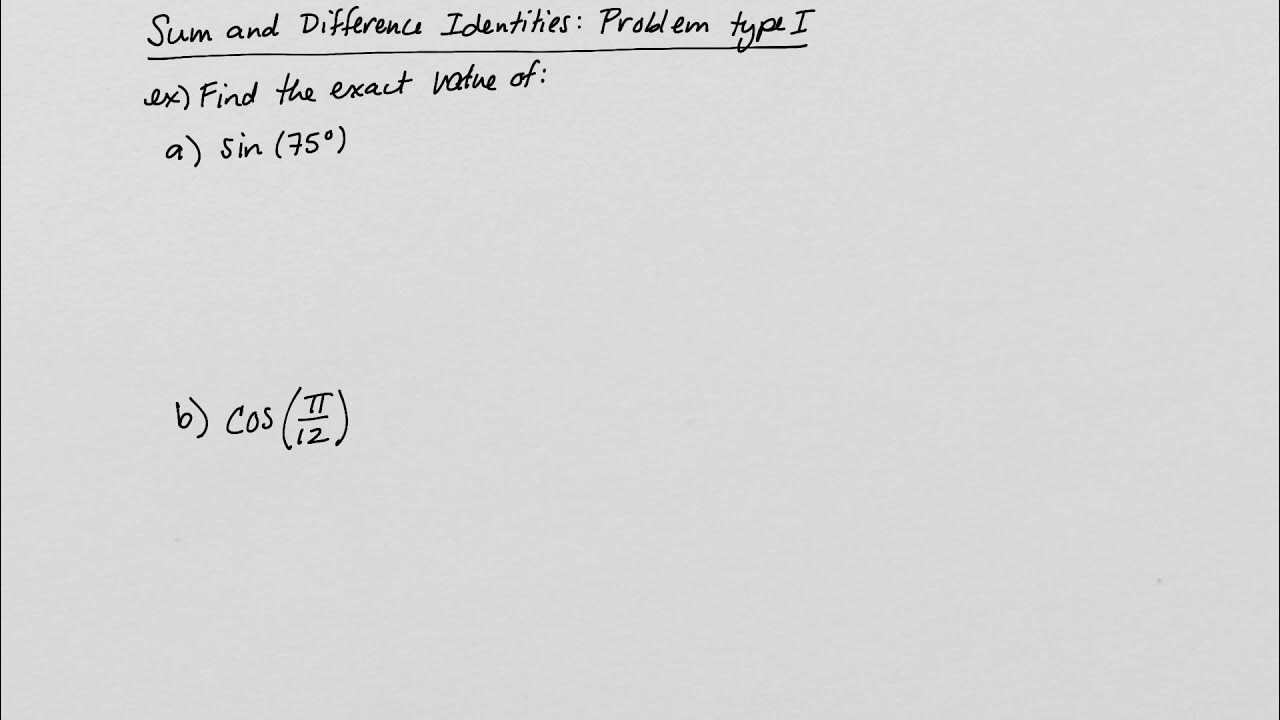 Sum and Difference Identities: Problem type I
ex) Find the exact value of:
a) sin (75°)
b) cos (π/12)